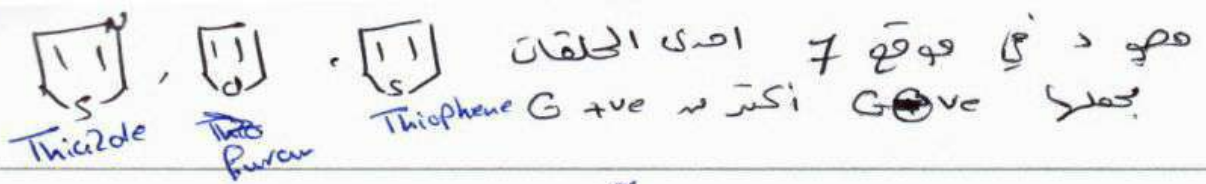 وجود في موقع 7 احدى الحلقات S , O , S N
يجعلها G ve أكثر من G +ve
Thiazole Furan Thiophene